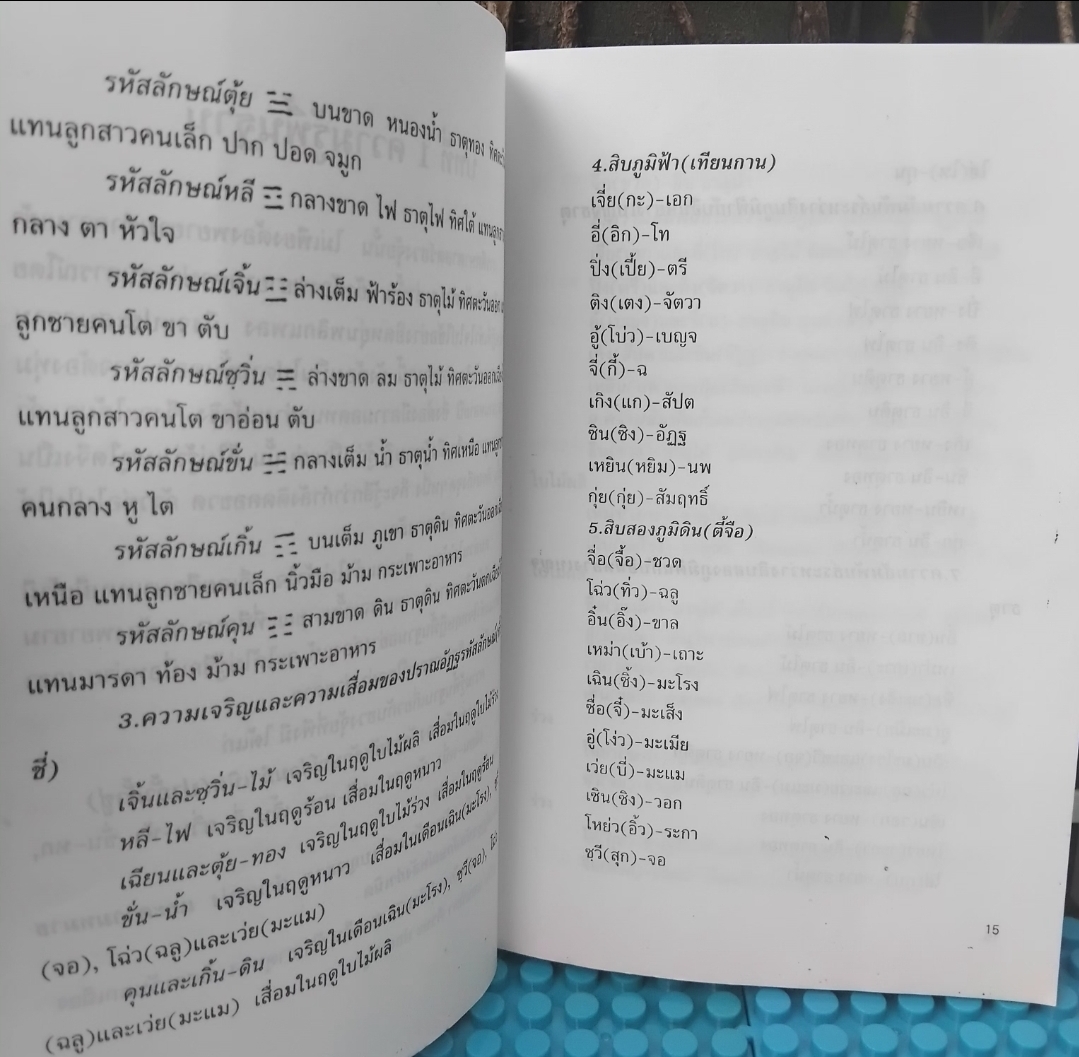 รหัสลักษณ์ตุ้ย ☱ บนขาด หนองน้ำ ธาตุทอง
แทนลูกสาวคนเล็ก ปาก ปอด จมูก
รหัสลักษณ์หลี ☲ กลางขาด ไฟ ธาตุไฟ ทิศใต้
กลาง ตา หัวใจ
รหัสลักษณ์เจิ้น ☳ ล่างเต็ม ฟ้าร้อง ธาตุไม้ ทิศตะวันออก
ลูกชายคนโต ขา ตับ
รหัสลักษณ์ซฺวิ่น ☴ ล่างขาด ลม ธาตุไม้
แทนลูกสาวคนโต ขาอ่อน ตับ
รหัสลักษณ์ขั่น ☵ กลางเต็ม น้ำ ธาตุน้ำ ทิศเหนือ
คนกลาง หู ไต
รหัสลักษณ์เกิ้น ☶ บนเต็ม ภูเขา ธาตุดิน
เหนือ แทนลูกชายคนเล็ก นิ้วมือ ม้าม กระเพาะอาหาร
รหัสลักษณ์คุน ☷ สามขาด ดิน ธาตุดิน
แทนมารดา ท้อง ม้าม กระเพาะอาหาร
3.ความเจริญและความเสื่อมของปราณอัฏฐรหัสลักษณ์
ชี่)
เจิ้นและซฺวิ่น-ไม้ เจริญในฤดูใบไม้ผลิ เสื่อมในฤดูใบไม้ร่วง
หลี-ไฟ เจริญในฤดูร้อน เสื่อมในฤดูหนาว
เฉียนและตุ้ย-ทอง เจริญในฤดูใบไม้ร่วง เสื่อมในฤดูร้อน
ขั่น-น้ำ เจริญในฤดูหนาว เสื่อมในเดือนเฉิน(มะโรง),
(จอ), โฉ่ว(ฉลู)และเว่ย(มะแม)
คุนและเกิ้น-ดิน เจริญในเดือนเฉิน(มะโรง), ซฺวี(จอ),
(ฉลู)และเว่ย(มะแม) เสื่อมในฤดูใบไม้ผลิ
4.สิบภูมิฟ้า(เทียนกาน)
เจี่ย(กะ)-เอก
อี่(อิก)-โท
ปิ่ง(เปี้ย)-ตรี
ติง(เตง)-จัตวา
อู้(โบ่ว)-เบญจ
จี่(กี้)-ฉ
เกิง(แก)-สัปต
ซิน(ซิง)-อัฏฐ
เหยิน(หยิม)-นพ
กุ่ย(กุ่ย)-สัมฤทธิ์
5.สิบสองภูมิดิน(ตี้จือ)
จื่อ(จื้อ)-ชวด
โฉ่ว(ทิ่ว)-ฉลู
อิ๋น(อิ๊ง)-ขาล
เหม่า(เบ้า)-เถาะ
เฉิน(ซิ้ง)-มะโรง
ซื่อ(จี๋)-มะเส็ง
อู่(โง่ว)-มะเมีย
เว่ย(บี่)-มะแม
เซิน(ซิง)-วอก
โหย่ว(อิ้ว)-ระกา
ซฺวี(สุก)-จอ
15